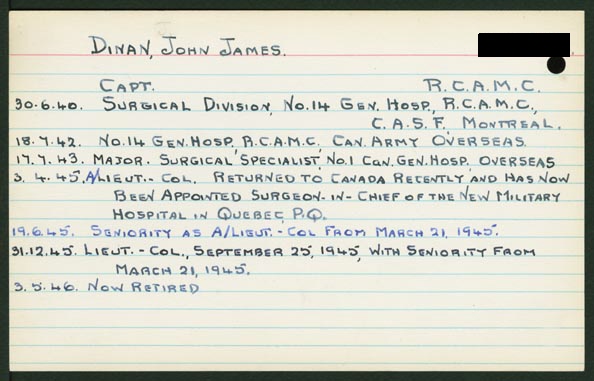 DINAN, JOHN JAMES.
CAPT. R.C.A.M.C.
30.6.40. SURGICAL DIVISION, NO.14 GEN. HOSP., R.C.A.M.C.,
C.A.S.F. MONTREAL.
18.7.42. NO.14 GEN. HOSP, R.C.A.M.C, CAN. ARMY OVERSEAS
17.7.43. MAJOR. SURGICAL SPECIALIST, NO.1 CAN. GEN. HOSP. OVERSEAS
3.4.45. A/LIEUT.-COL. RETURNED TO CANADA RECENTLY AND HAS NOW
BEEN APPOINTED SURGEON-IN-CHIEF OF THE NEW MILITARY
HOSPITAL IN QUEBEC, P.Q.
19.6.45. SENIORITY AS A/LIEUT.-COL FROM MARCH 21, 1945.
31.12.45. LIEUT.-COL., SEPTEMBER 25, 1945, WITH SENIORITY FROM
MARCH 21, 1945.
3.5.46. NOW RETIRED